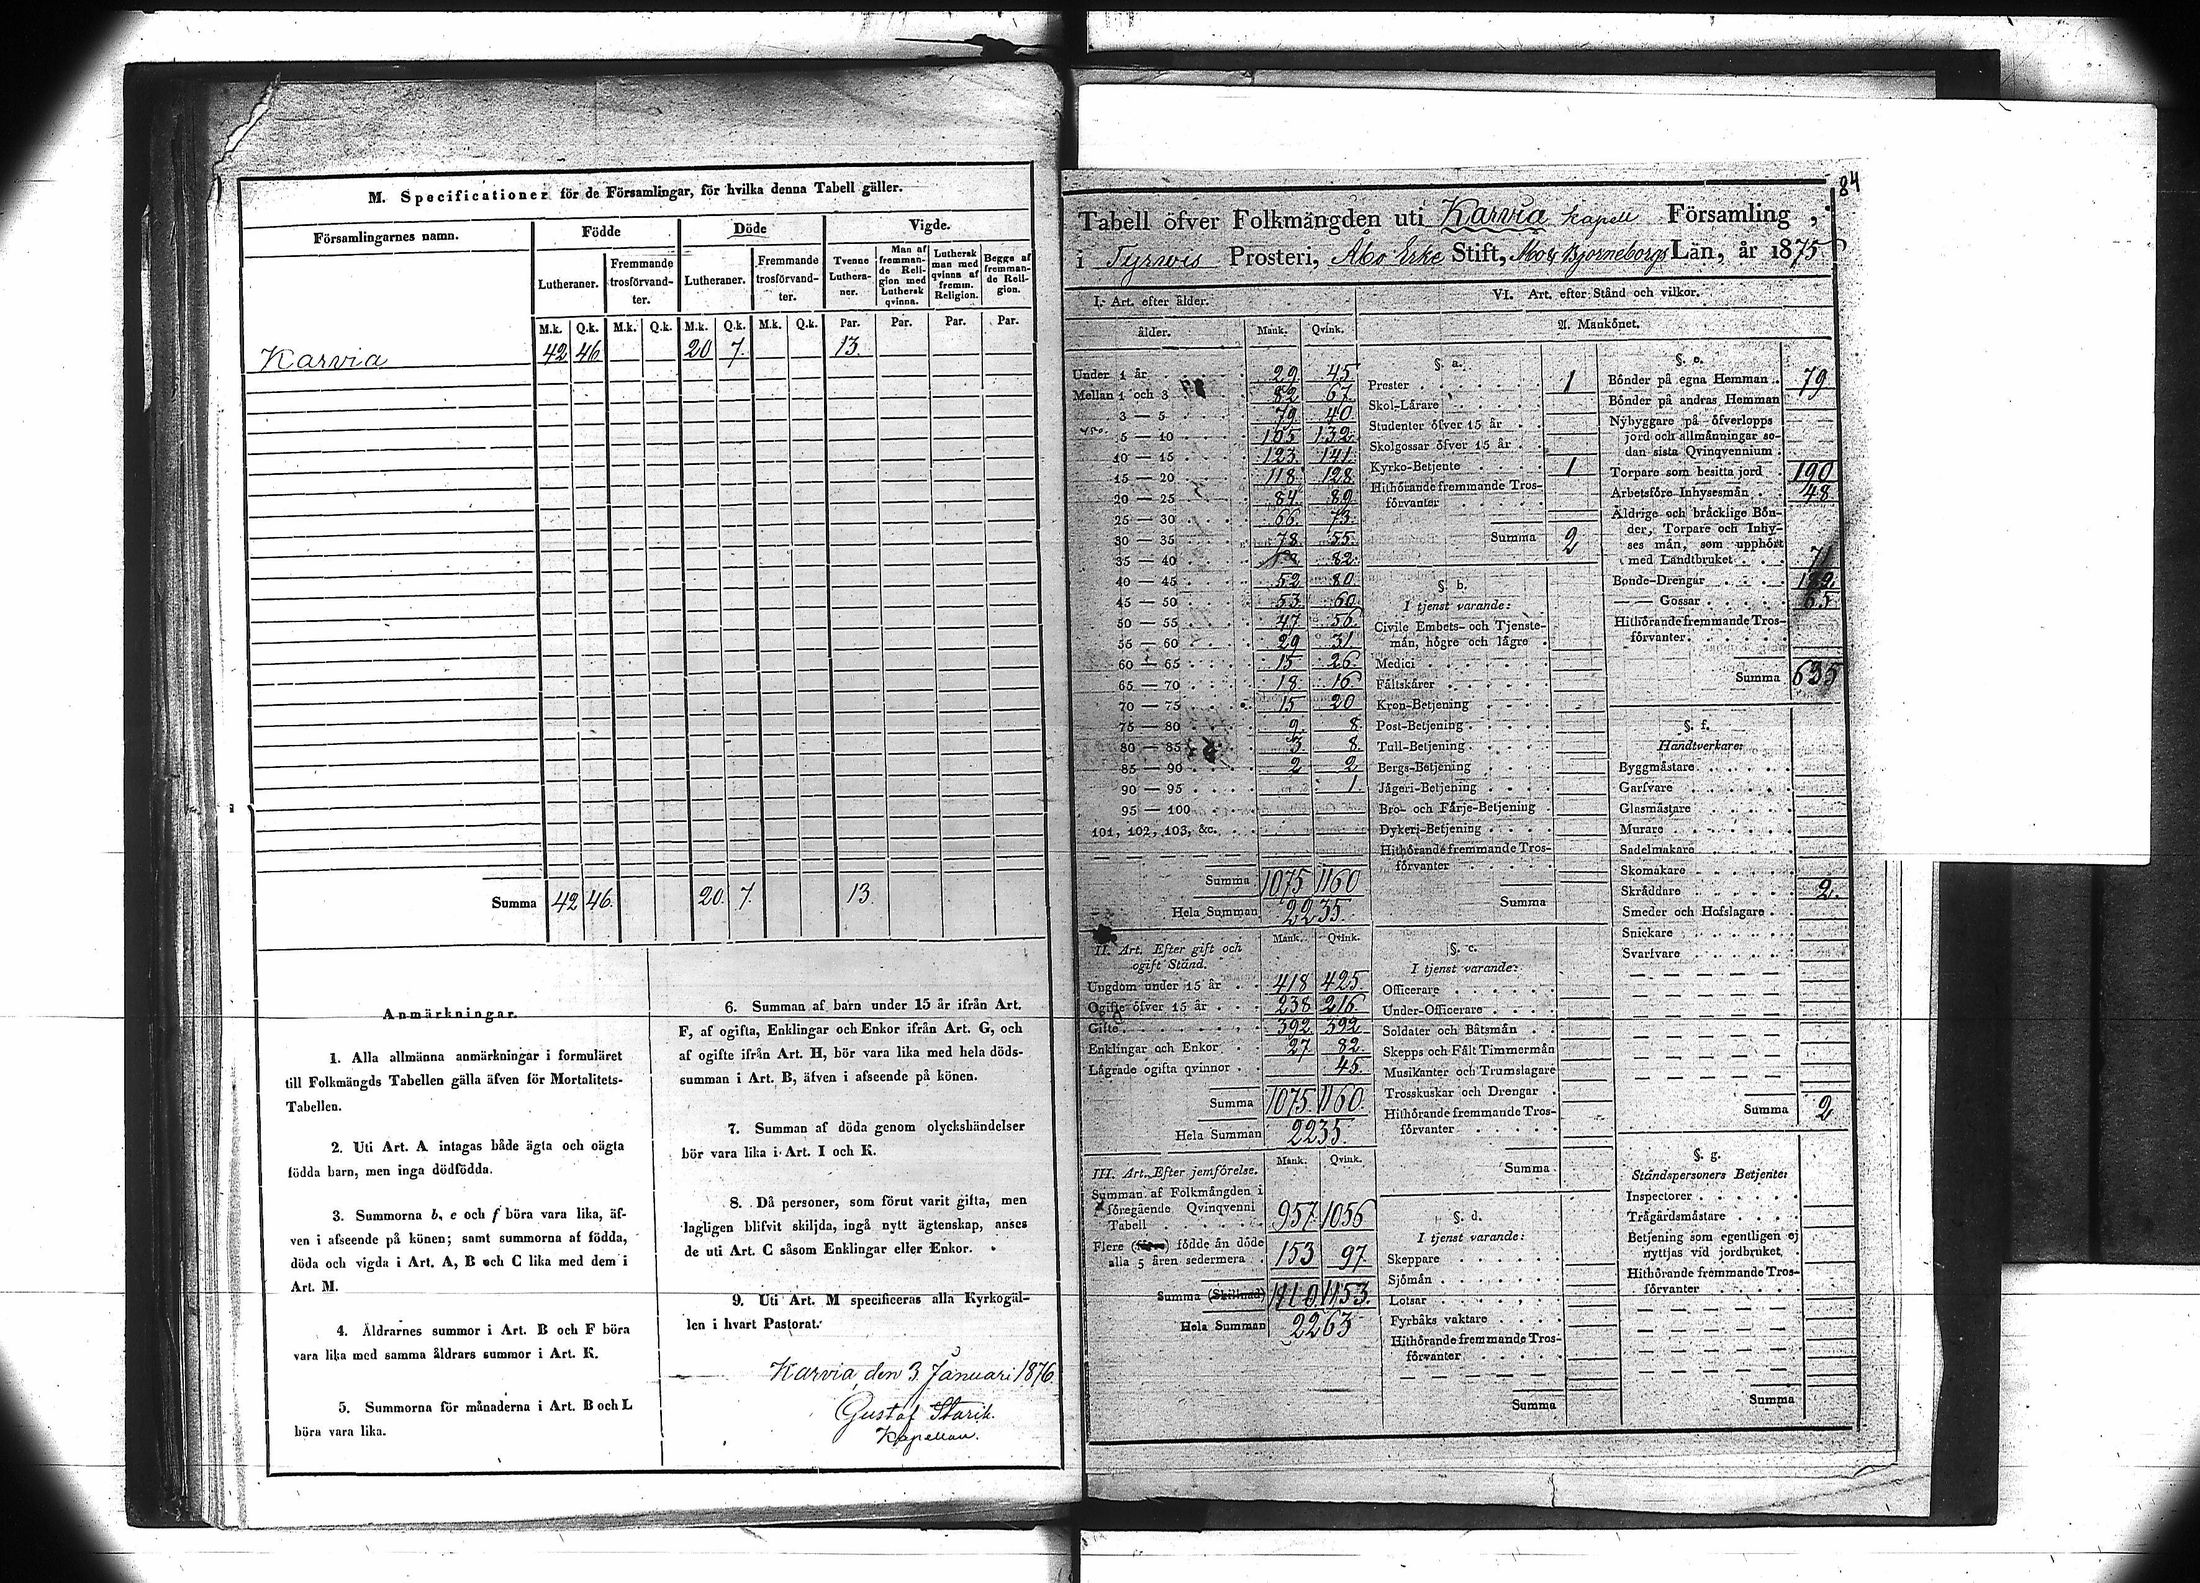 M. Specificationer för de Församlingar, för hvilka denna Tabell gäller.
Församlingarnes namn.
Födde
Döde
Vigde.
Lutheraner.
Fremmande trosförvandter.
Lutheraner.
Fremmande trosförvandter.
Tvenne Lutheraner.
Man af fremmande Religion med Luthersk qvinna.
Luthersk man med qvinna af fremm. Religion.
Begge af fremmande Religion.
M.k. Q.k. M.k. Q.k. M.k. Q.k. M.k. Q.k. Par. Par. Par. Par.
Karvia 42 46 20 7. 13.
Summa 42 46. 20. 7. 13.
Anmärkningar.
1. Alla allmänna anmärkningar i formuläret
till Folkmängds Tabellen gälla äfven för Mortalitets-
Tabellen.
2. Uti Art. A intagas både ägta och oägta
födda barn, men inga dödfödda.
3. Summorna b, e och f böra vara lika, äf-
ven i afseende på könen; samt summorna af födda,
döda och vigda i Art. A, B och C lika med dem i
Art. M.
4. Äldrarnes summor i Art. B och F böra
vara lika med samma äldrars summor i Art. K.
5. Summorna för månaderna i Art. B och L
böra vara lika.
6. Summan af barn under 15 år ifrån Art.
F, af ogifta, Enklingar och Enkor ifrån Art. G, och
af ogifte ifrån Art. H, bör vara lika med hela döds-
summan i Art. B, äfven i afseende på könen.
7. Summan af döda genom olyckshändelser
bör vara lika i Art. I och K.
8. Då personer, som förut varit gifta, men
lagligen blifvit skiljda, ingå nytt ägtenskap, anses
de uti Art. C såsom Enklingar eller Enkor.
9. Uti Art. M specificeras alla Kyrkogäl-
len i hvart Pastorat.
Karvia, den 3 Januari 1876.
Gustaf Starik.
Kapellan.
84
Tabell öfver Folkmängden uti Karvia kapell Församling,
i Tyrwis Prosteri, Åbo Erke Stift, Åbo & Björneborgs Län, år 1875.
I. Art. efter ålder.
ålder. Mank. Qvink.
Under 1 år 29 45
Mellan 1 och 3 82 67.
3 — 5 79 40
5 — 10 105 132
10 — 15 123. 141.
15 — 20 118 128
20 — 25 84 89
25 — 30 66. 73.
30 — 35 78 55.
35 — 40 82.
40 — 45 52 80.
45 — 50 53 60
50 — 55 47 56
55 — 60 29 31.
60 — 65 15 26
65 — 70 18. 16
70 — 75 15 20
75 — 80 9. 8.
80 — 85 3 8.
85 — 90 2 2
90 — 95 1.
95 — 100
101, 102, 103, &c.
Summa 1075 1160
Hela Summan 2235.
II. Art. Efter gift och
ogift Stånd.
Mank. Qvink.
Ungdom under 15 år 418 425
Ogifte öfver 15 år 238 216
Gifte 392 592
Enklingar och Enkor 27. 82.
Lägrade ogifta qvinnor 45.
Summa 1075. 1160.
Hela Summan 2235.
III. Art. Efter jemförelse.
Mank. Qvink.
Summan af Folkmängden i
föregående Qvinqvenni
Tabell 957. 1056
Flere födde än döde
alla 5 åren sedermera 153 97.
Summa (Skillnad) 1110. 1153.
Hela Summan 2263
VI. Art. efter Stånd och vilkor.
A. Mankönet.
§. a.
Prester 1
Skol-Lärare
Studenter öfver 15 år
Skolgossar öfver 15 år
Kyrko-Betjente 1
Hithörande fremmande Tros-
förvanter
Summa 2
§. b.
I tjenst varande:
Civile Embets- och Tjenste-
män, högre och lägre
Medici
Fältskärer
Kron-Betjening
Post-Betjening
Tull-Betjening
Bergs-Betjening
Jägeri-Betjening
Bro- och Färje-Betjening
Dykeri-Betjening
Hithörande fremmande Tros-
förvanter
Summa
§. c.
I tjenst varande:
Officerare
Under-Officerare
Soldater och Båtsmän
Skepps och Fält Timmermän
Musikanter och Trumslagare
Trosskuskar och Drengar
Hithörande fremmande Tros-
förvanter
Summa
§. d.
I tjenst varande:
Skeppare
Sjömän
Lotsar
Fyrbåks vaktare
Hithörande fremmande Tros-
förvanter
Summa
§. e.
Bönder på egna Hemman 79
Bönder på andras Hemman
Nybyggare på öfverlopps
jord och allmänningar se-
dan sista Qvinqvennium
Torpare som besitta jord 190
Arbetsföre Inhysesmän 48
Äldrige och bräcklige Bön-
der, Torpare och Inhy-
ses män, som upphört
med Landtbruket
Bonde-Drengar
— — Gossar 65
Hithörande fremmande Tros-
förvanter
Summa 635
§. f.
Handtverkare:
Byggmästare
Garfvare
Glasmästare
Murare
Sadelmakare
Skomakare
Skräddare 2.
Smeder och Hofslagare
Snickare
Svarfvare
Summa 2
§. g.
Ståndspersoners Betjente:
Inspectorer
Trägårdsmästare
Betjening som egentligen ej
nyttjas vid jordbruket
Hithörande fremmande Tros-
förvanter
Summa